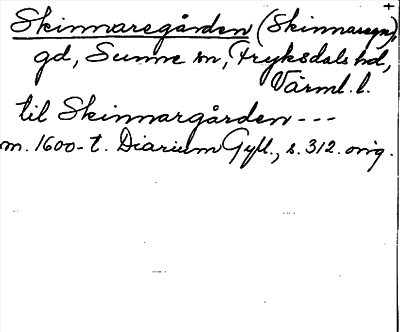 Skinnaregården (Skinnaregn), +
gd, Sunne sn, Fryksdals hd,
Värml. l.
til Skinnargården ---
m. 1600-t. Diarium Gyll., s. 312. orig.